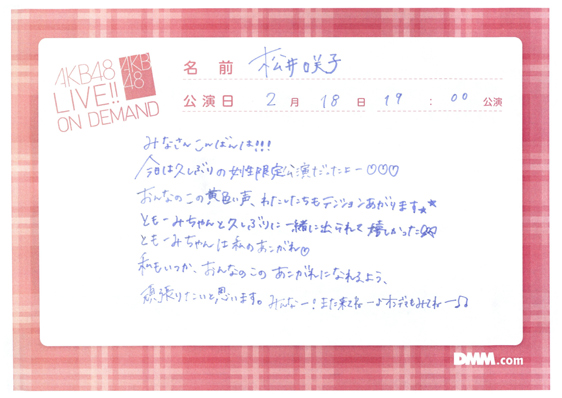 AKB48
LIVE!!
ON DEMAND
AKB
48
名前 松井咲子
公演日 2月18日19:00公演
みなさんこんばんは!!!
今日は久しぶりの女性限定公演だったよー♡♡♡
おんなのこの黄色い声、わたしたちもテンションあがります★★
ともーみちゃんと久しぶりに一緒に出られて嬉しかった
ともーみちゃんは私のあこがれ♡
私もいつか、おんなのこのあこがれになれるよう、
頑張りたいと思います。みんなー!また来てねー♪オンデマもみてねー♪♪
DMM.com